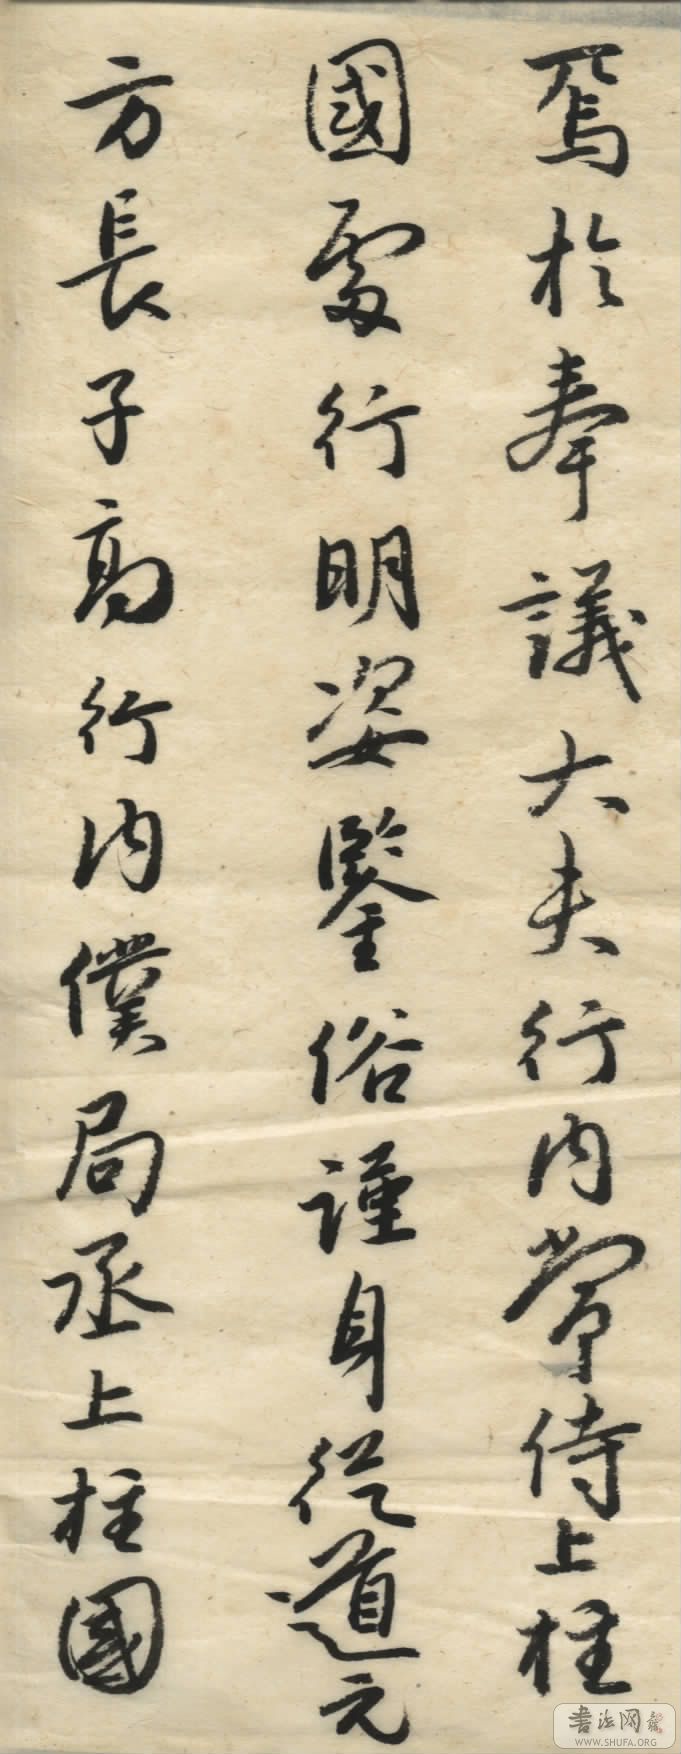 焉於奉議大夫行内常侍上柱
國處行明姿鑒俗謹身從道元
方長子高行内僕局丞上柱國
書法网
WWW.SHUFA.ORG